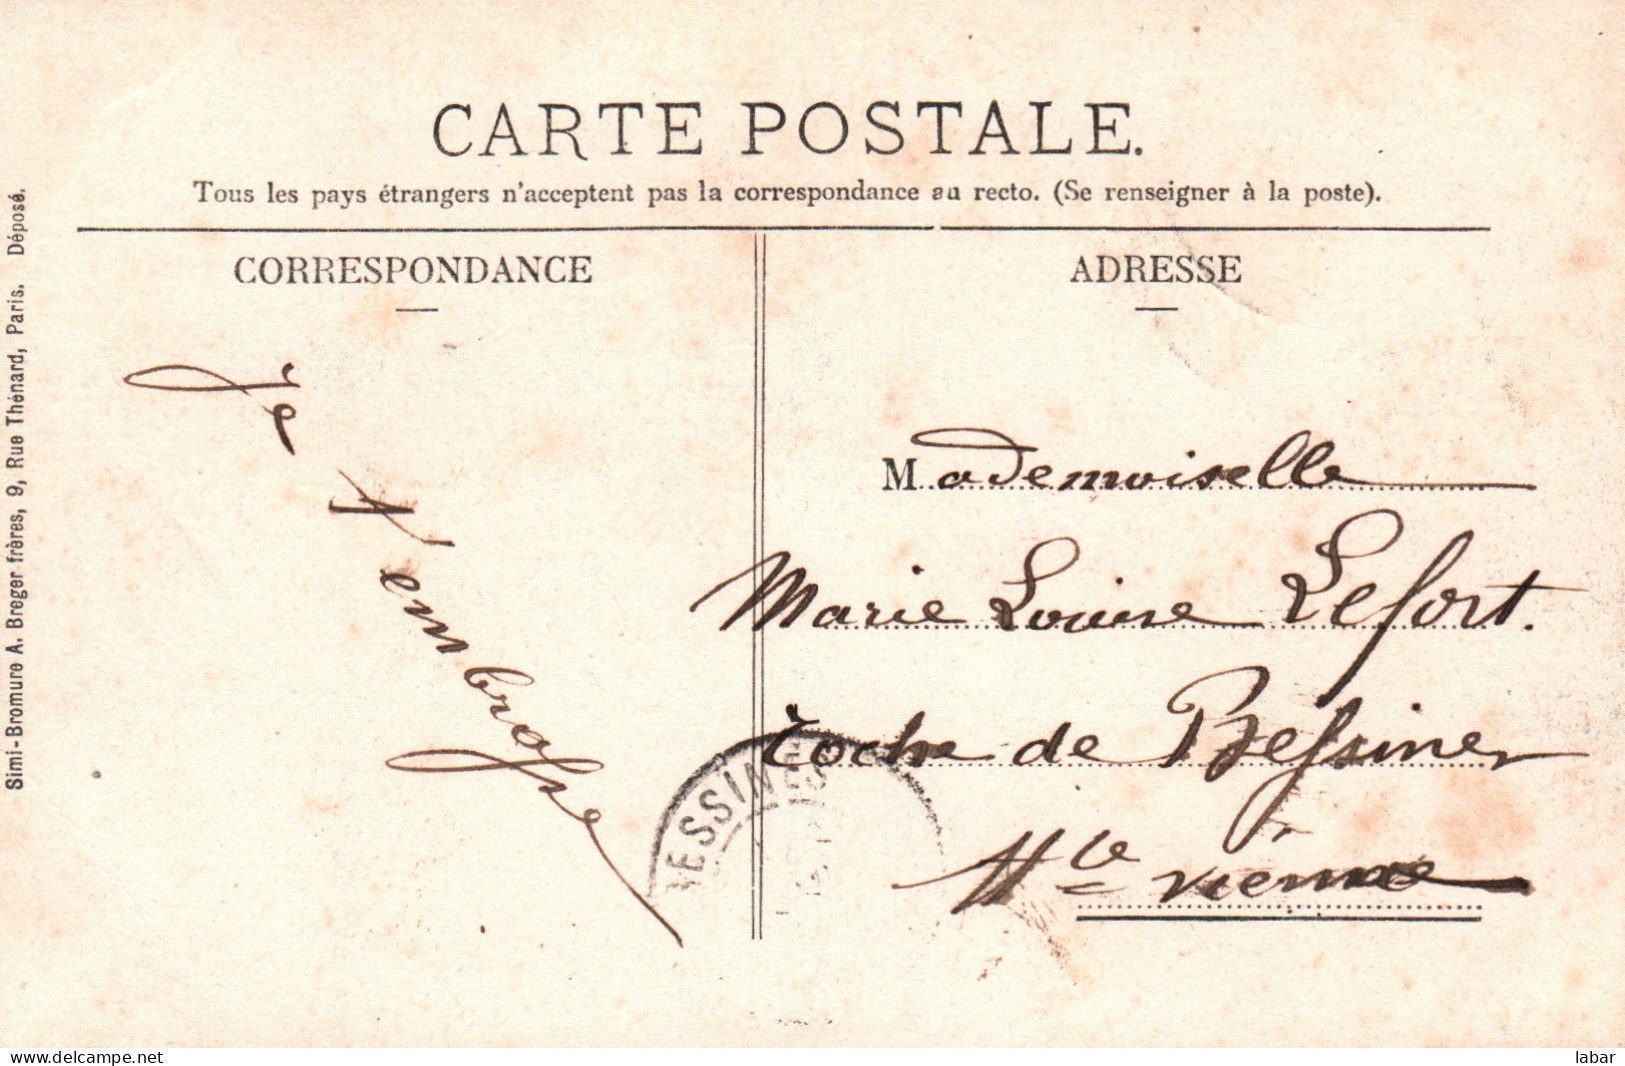 CARTE POSTALE.
Tous les pays étrangers n'acceptent pas la correspondance au recto. (Se renseigner à la poste).
Simi-Bromure A. Breger frères, 9, Rue Thénard, Paris. Déposé.
CORRESPONDANCE
Je
t'embrasse
ADRESSE
Mademoiselle
Marie Louise Lefort.
Roche de Bessines
Hte Vienne
BESSINES
www.delcampe.net
labar